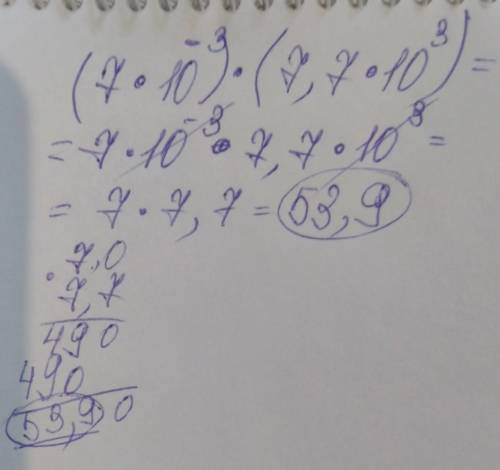 (7 · 10⁻³) · (7,7 · 10³) =
= 7 · 10⁻³ · 7,7 · 10³ =
= 7 · 7,7 = 53,9
· 7,0
7,7
490
490
53,90